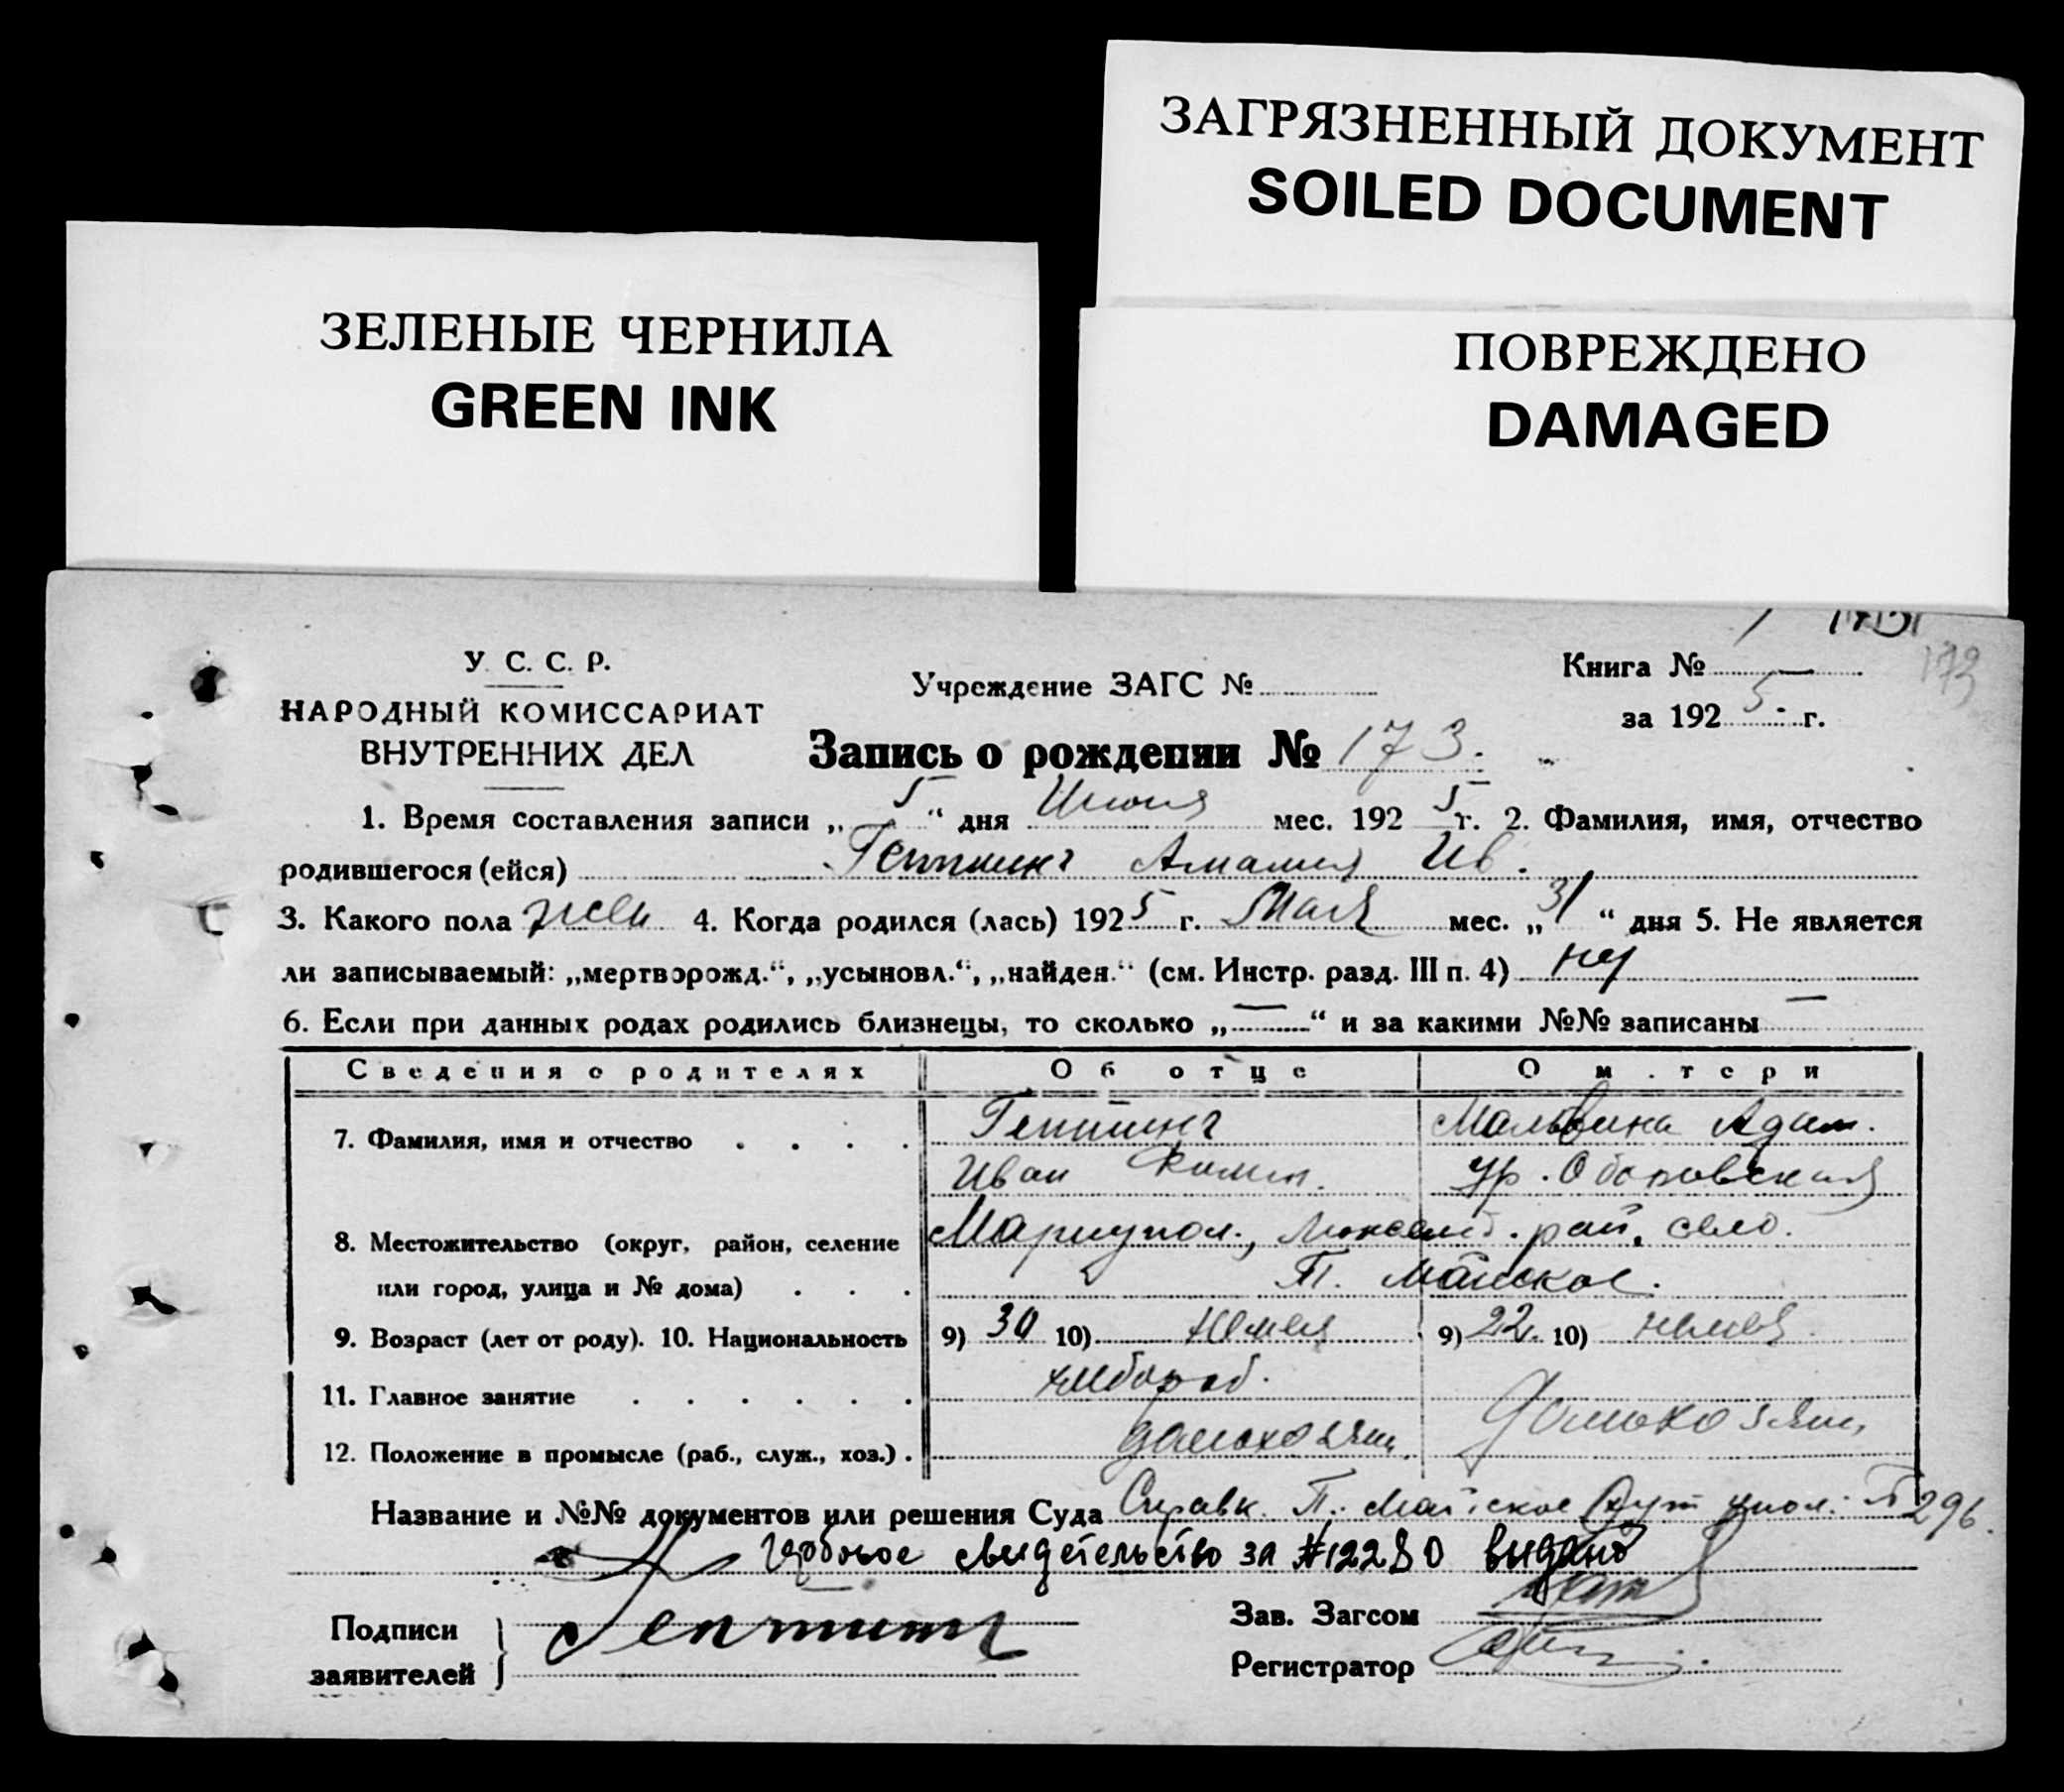 ЗАГРЯЗНЕННЫЙ ДОКУМЕНТ
SOILED DOCUMENT
ЗЕЛЕНЫЕ ЧЕРНИЛА
GREEN INK
ПОВРЕЖДЕНО
DAMAGED
У. С. С. Р.
НАРОДНЫЙ КОМИССАРИАТ
ВНУТРЕННИХ ДЕЛ
Учреждение ЗАГС №
Книга № —
173
за 1925 г.
Запись о рождении № 173.
1. Время составления записи „5“ дня Июня мес. 1925 г. 2. Фамилия, имя, отчество
родившегося (ейся) Геппинг Амалия Ив.
3. Какого пола жен 4. Когда родился (лась) 1925 г. Мая мес. „31“ дня 5. Не является
ли записываемый: „мертворожд.“, „усыновл.“, „найден.“ (см. Инстр. разд. III п. 4) нет
6. Если при данных родах родились близнецы, то сколько „—“ и за какими №№ записаны —
Сведения о родителях Об отце О м.тери
7. Фамилия, имя и отчество . . . . Геппинг Мальвина Адам.
Иван ур.
8. Местожительство (округ, район, селение Мариупол., Люксемб. рай. село.
или город, улица и № дома) . . . П. Майское.
9. Возраст (лет от роду). 10. Национальность 9) 30 10) немец 9) 22. 10) немка
11. Главное занятие . . . . . . хлебороб.
12. Положение в промысле (раб., служ., хоз.) . домохозяин домохозяин,
Название и №№ документов или решения Суда Справк. П. Майское 296.
свидетельство за #12280 выдано
Подписи
заявителей
Геппинг
Зав. Загсом
Регистратор